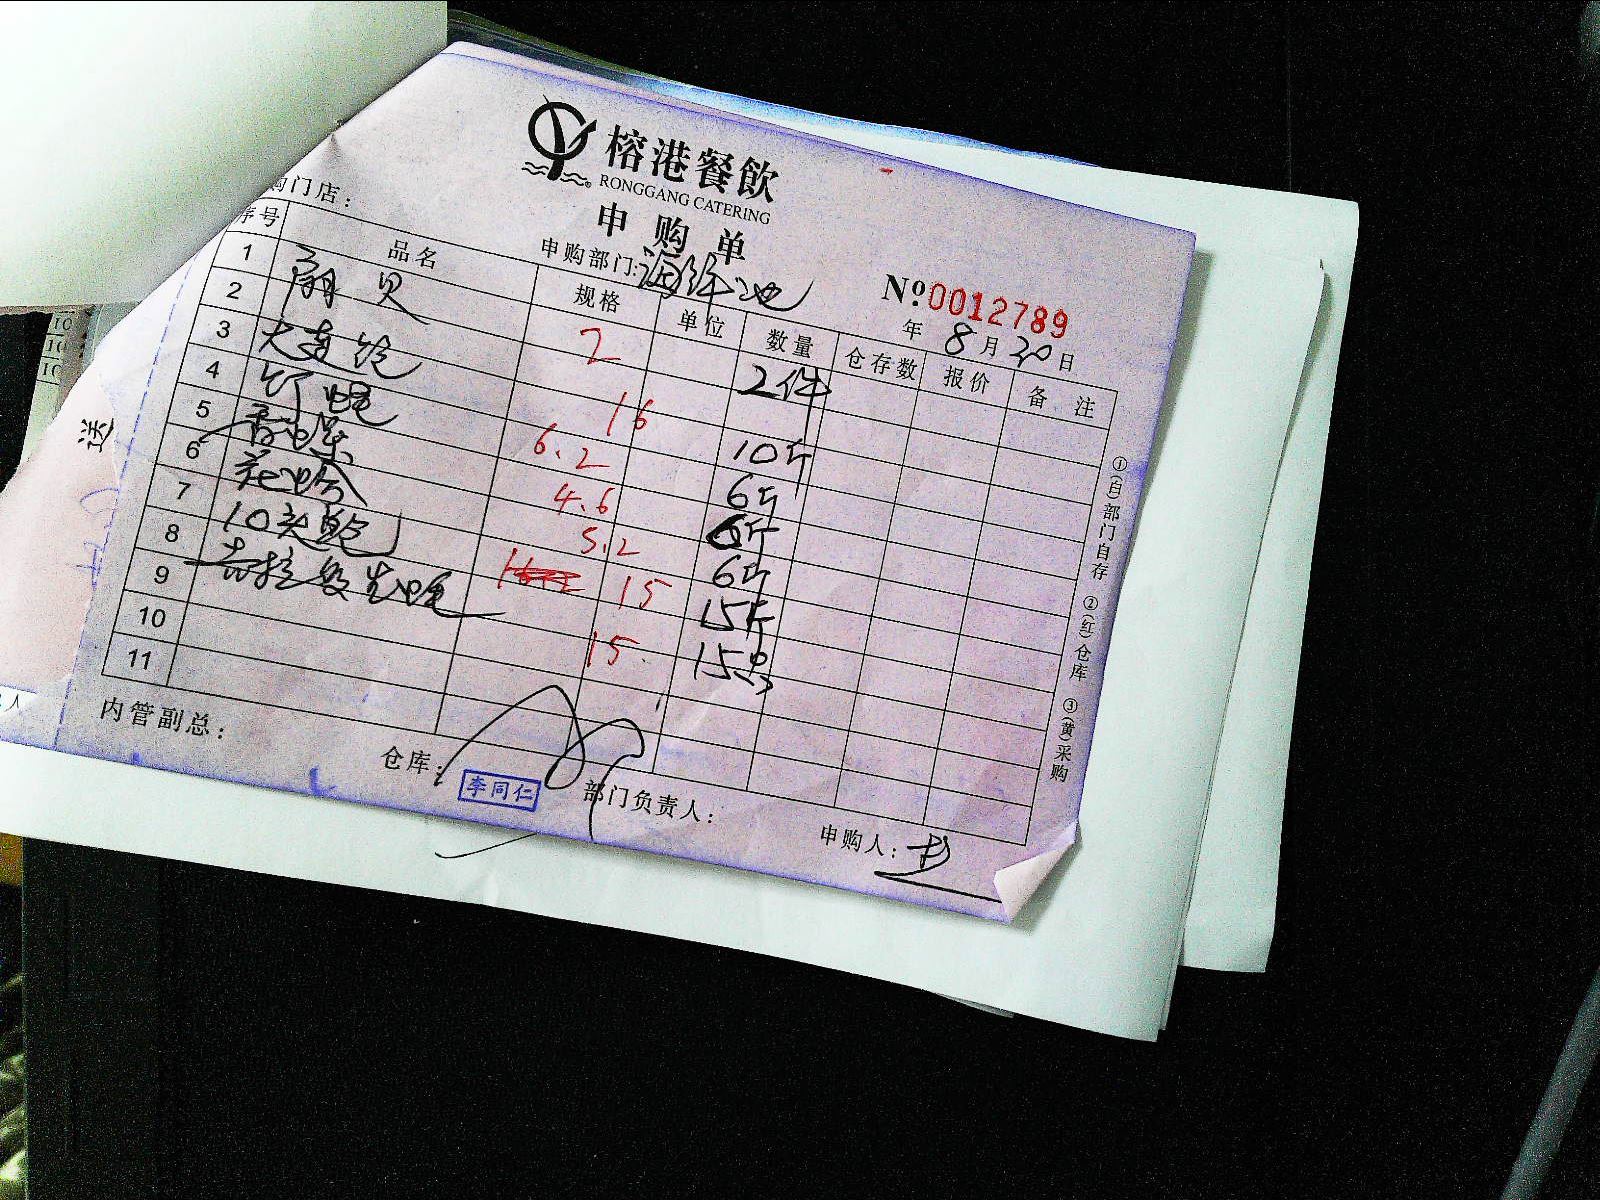 榕港餐飲
RONGGANG CATERING
申购单
购门店：
申购部门:海鲜池
№0012789
年 8月30日
序号 品名 规格 单位 数量 仓存数 报价 备注
1 扇贝 2 2件
2
3 大连鲍 16 10斤
4 蛏 6.2 6斤
5 香螺 4.6 6斤
6 花蛤 5.2 6斤
7 10头鲍 15 15斤
8 15 15只
9
10
11
内管副总：
仓库：
李同仁
部门负责人：
申购人：
①(白)部门自存 ②(红)仓库 ③(黄)采购
送
人